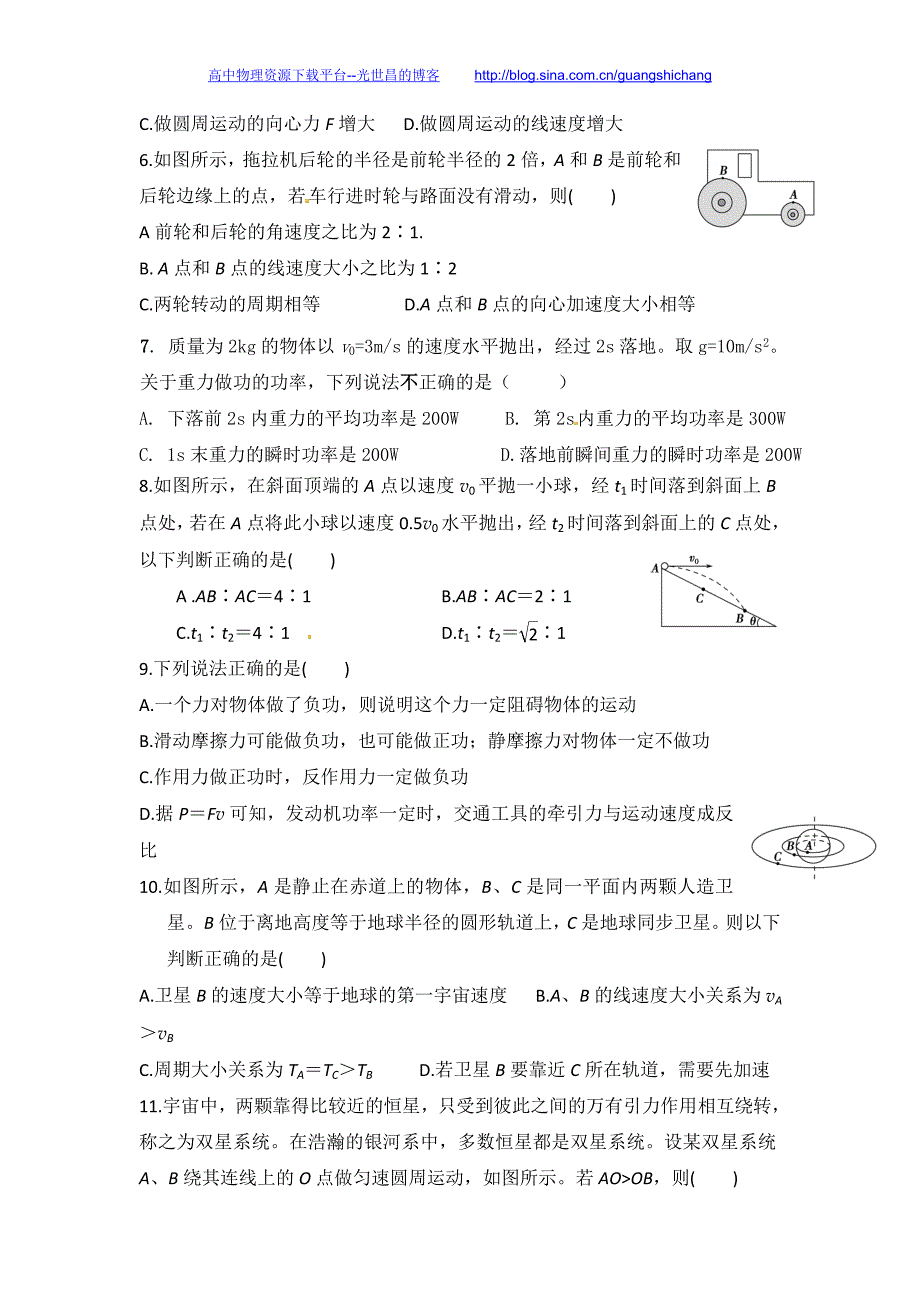 高中物理资源下载平台--光世昌的博客 http://blog.sina.com.cn/guangshichang
C.做圆周运动的向心力 F 增大 D.做圆周运动的线速度增大
6.如图所示，拖拉机后轮的半径是前轮半径的 2 倍，A 和 B 是前轮和
后轮边缘上的点，若车行进时轮与路面没有滑动，则( )
B
A
A 前轮和后轮的角速度之比为 2∶1.
B. A 点和 B 点的线速度大小之比为 1∶2
C.两轮转动的周期相等 D.A 点和 B 点的向心加速度大小相等
7. 质量为 2kg 的物体以 v₀=3m/s 的速度水平抛出，经过 2s 落地。取 g=10m/s²。
关于重力做功的功率，下列说法不正确的是（ ）
A. 下落前 2s 内重力的平均功率是 200W B. 第 2s 内重力的平均功率是 300W
C. 1s 末重力的瞬时功率是 200W D. 落地前瞬间重力的瞬时功率是 200W
8.如图所示，在斜面顶端的 A 点以速度 v₀ 平抛一小球，经 t₁ 时间落到斜面上 B
点处，若在 A 点将此小球以速度 0.5v₀ 水平抛出，经 t₂ 时间落到斜面上的 C 点处，
以下判断正确的是( )
A v₀
C
B θ
A .AB∶AC＝4∶1 B.AB∶AC＝2∶1
C.t₁∶t₂＝4∶1 D.t₁∶t₂＝√2∶1
9.下列说法正确的是( )
A.一个力对物体做了负功，则说明这个力一定阻碍物体的运动
B.滑动摩擦力可能做负功，也可能做正功；静摩擦力对物体一定不做功
C.作用力做正功时，反作用力一定做负功
D.据 P＝Fv 可知，发动机功率一定时，交通工具的牵引力与运动速度成反
比
B A
C
10.如图所示，A 是静止在赤道上的物体，B、C 是同一平面内两颗人造卫
星。B 位于离地高度等于地球半径的圆形轨道上，C 是地球同步卫星。则以下
判断正确的是( )
A.卫星 B 的速度大小等于地球的第一宇宙速度 B.A、B 的线速度大小关系为 vA
＞vB
C.周期大小关系为 TA＝TC＞TB D.若卫星 B 要靠近 C 所在轨道，需要先加速
11.宇宙中，两颗靠得比较近的恒星，只受到彼此之间的万有引力作用相互绕转，
称之为双星系统。在浩瀚的银河系中，多数恒星都是双星系统。设某双星系统
A、B 绕其连线上的 O 点做匀速圆周运动，如图所示。若 AO>OB，则( )